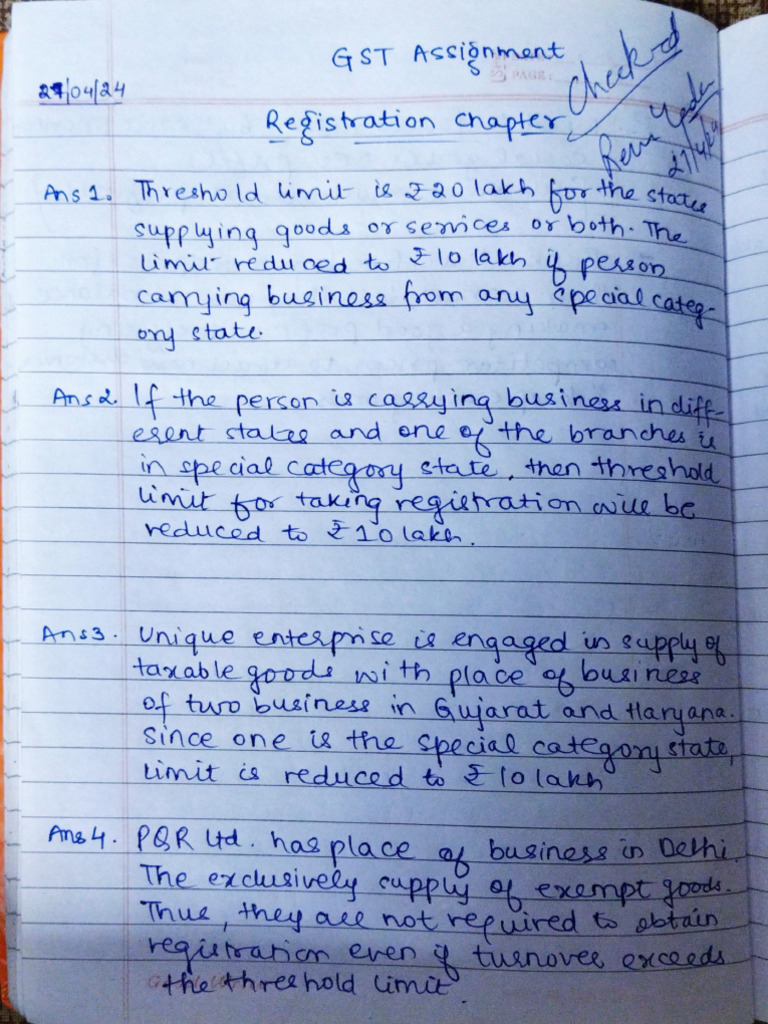 GST Assignment
27/04/24
Checked
Registration Chapter
27/4/24
Ans 1. Threshold limit is ₹20 lakh for the states
supplying goods or services or both. The
limit reduced to ₹10 lakh if person
carrying business from any special categ-
ory state.
Ans 2. If the person is carrying business in diff-
erent states and one of the branches is
in special category state, then threshold
limit for taking registration will be
reduced to ₹10 lakh.
Ans 3. Unique enterprise is engaged in supply of
taxable goods with place of business
of two business in Gujarat and Haryana.
Since one is the special category state,
limit is reduced to ₹10 lakh
Ans 4. PQR Ltd. has place of business in Delhi.
The exclusively supply of exempt goods.
Thus, they are not required to obtain
registration even if turnover exceeds
the threshold limit.